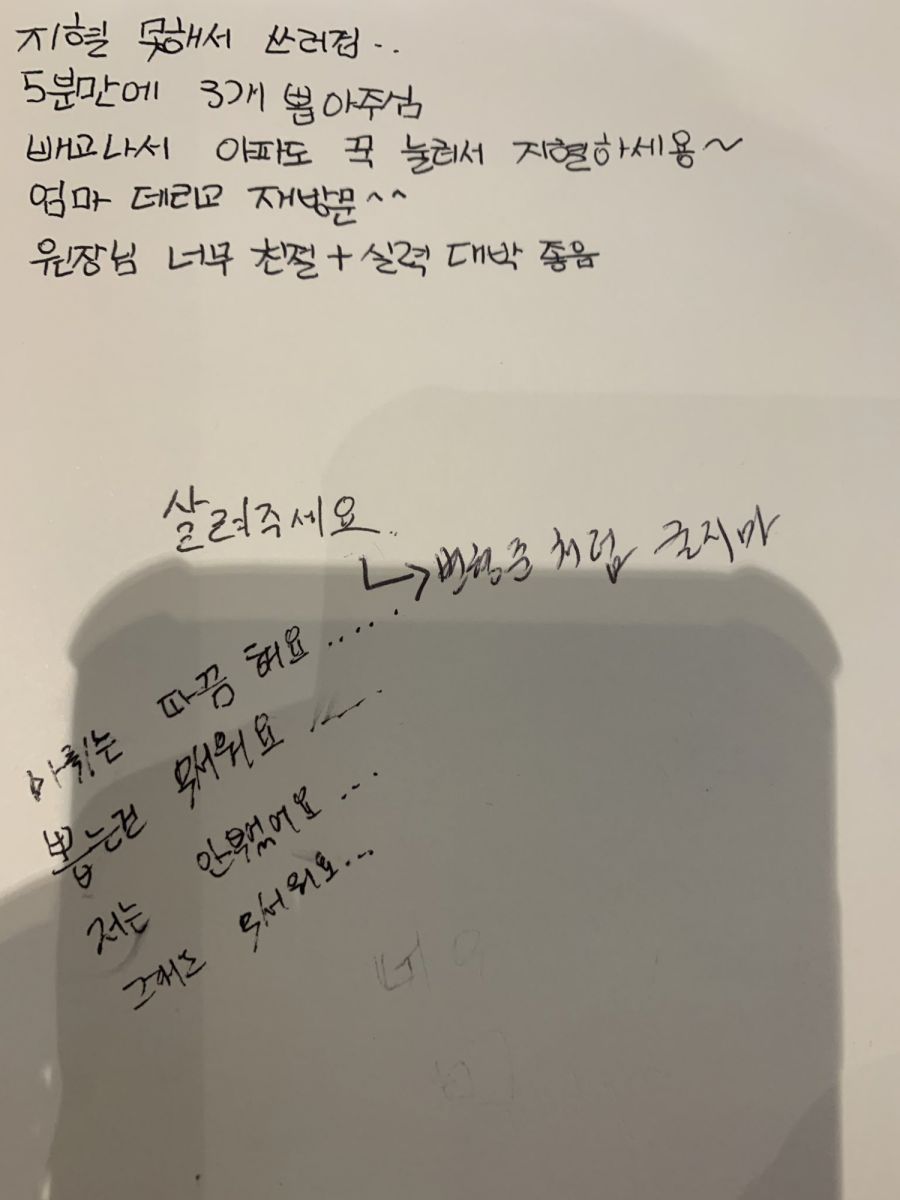 지혈 못해서 쓰러짐..
5분만에 3개 뽑아주심
배고나서 아파도 꾹 눌러서 지혈하세용~
엄마 데리고 재방문^^
원장님 너무 친절+실력 대박 좋음
살려주세요..
처럼 울지마
마취는 따끔 해요.....
뽑는건 무서워요
저는 안무섭어요...
그래도 무서워요...